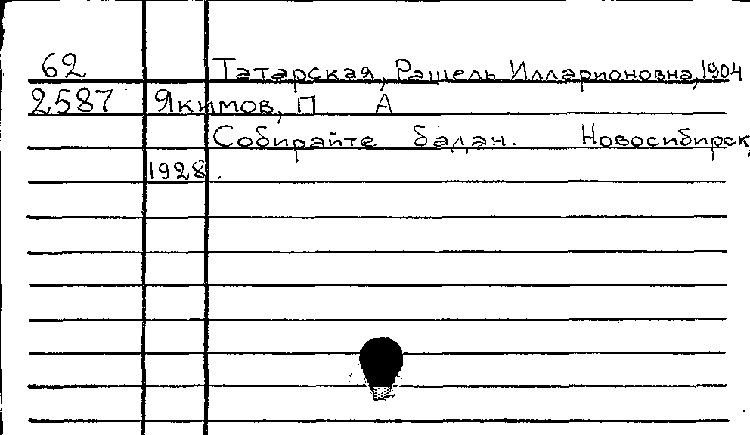 62 Татарская, Рашель Илларионовна, 1904
2587 Якимов, П А
Собирайте бадан. Новосибирск,
1928.